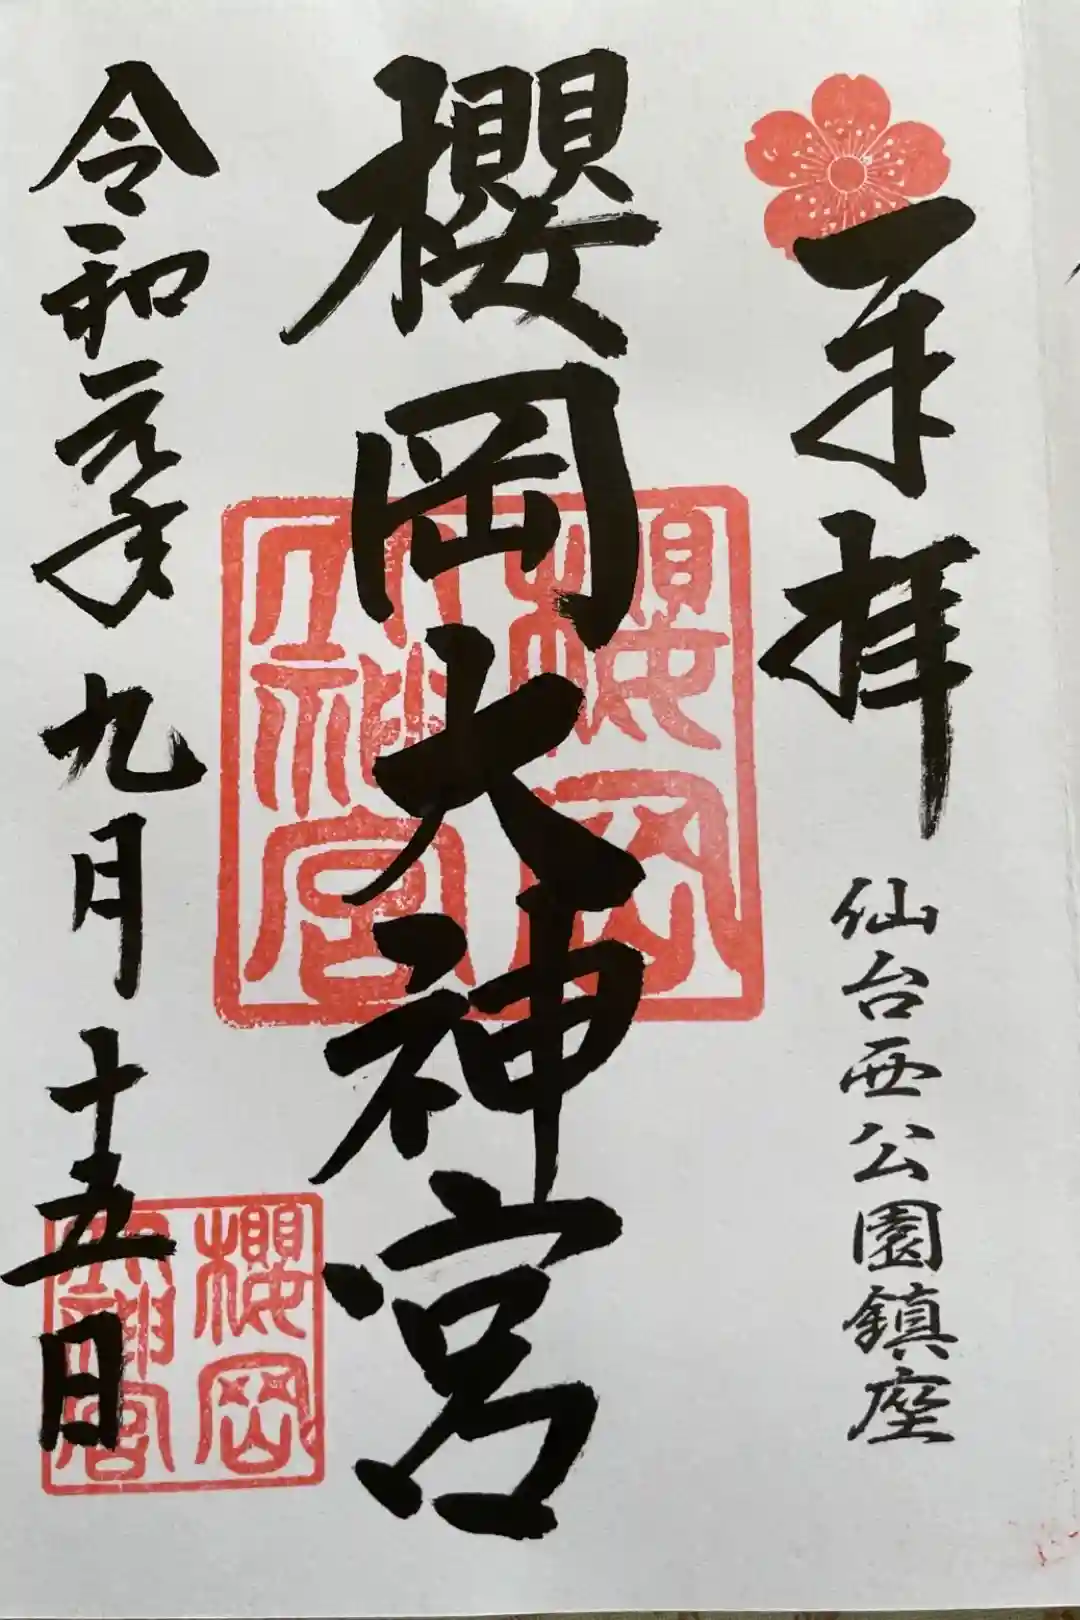 奉拝
仙台西公園鎮座
櫻岡大神宮
櫻岡
大神宮
令和元年九月十五日
櫻岡
大神宮